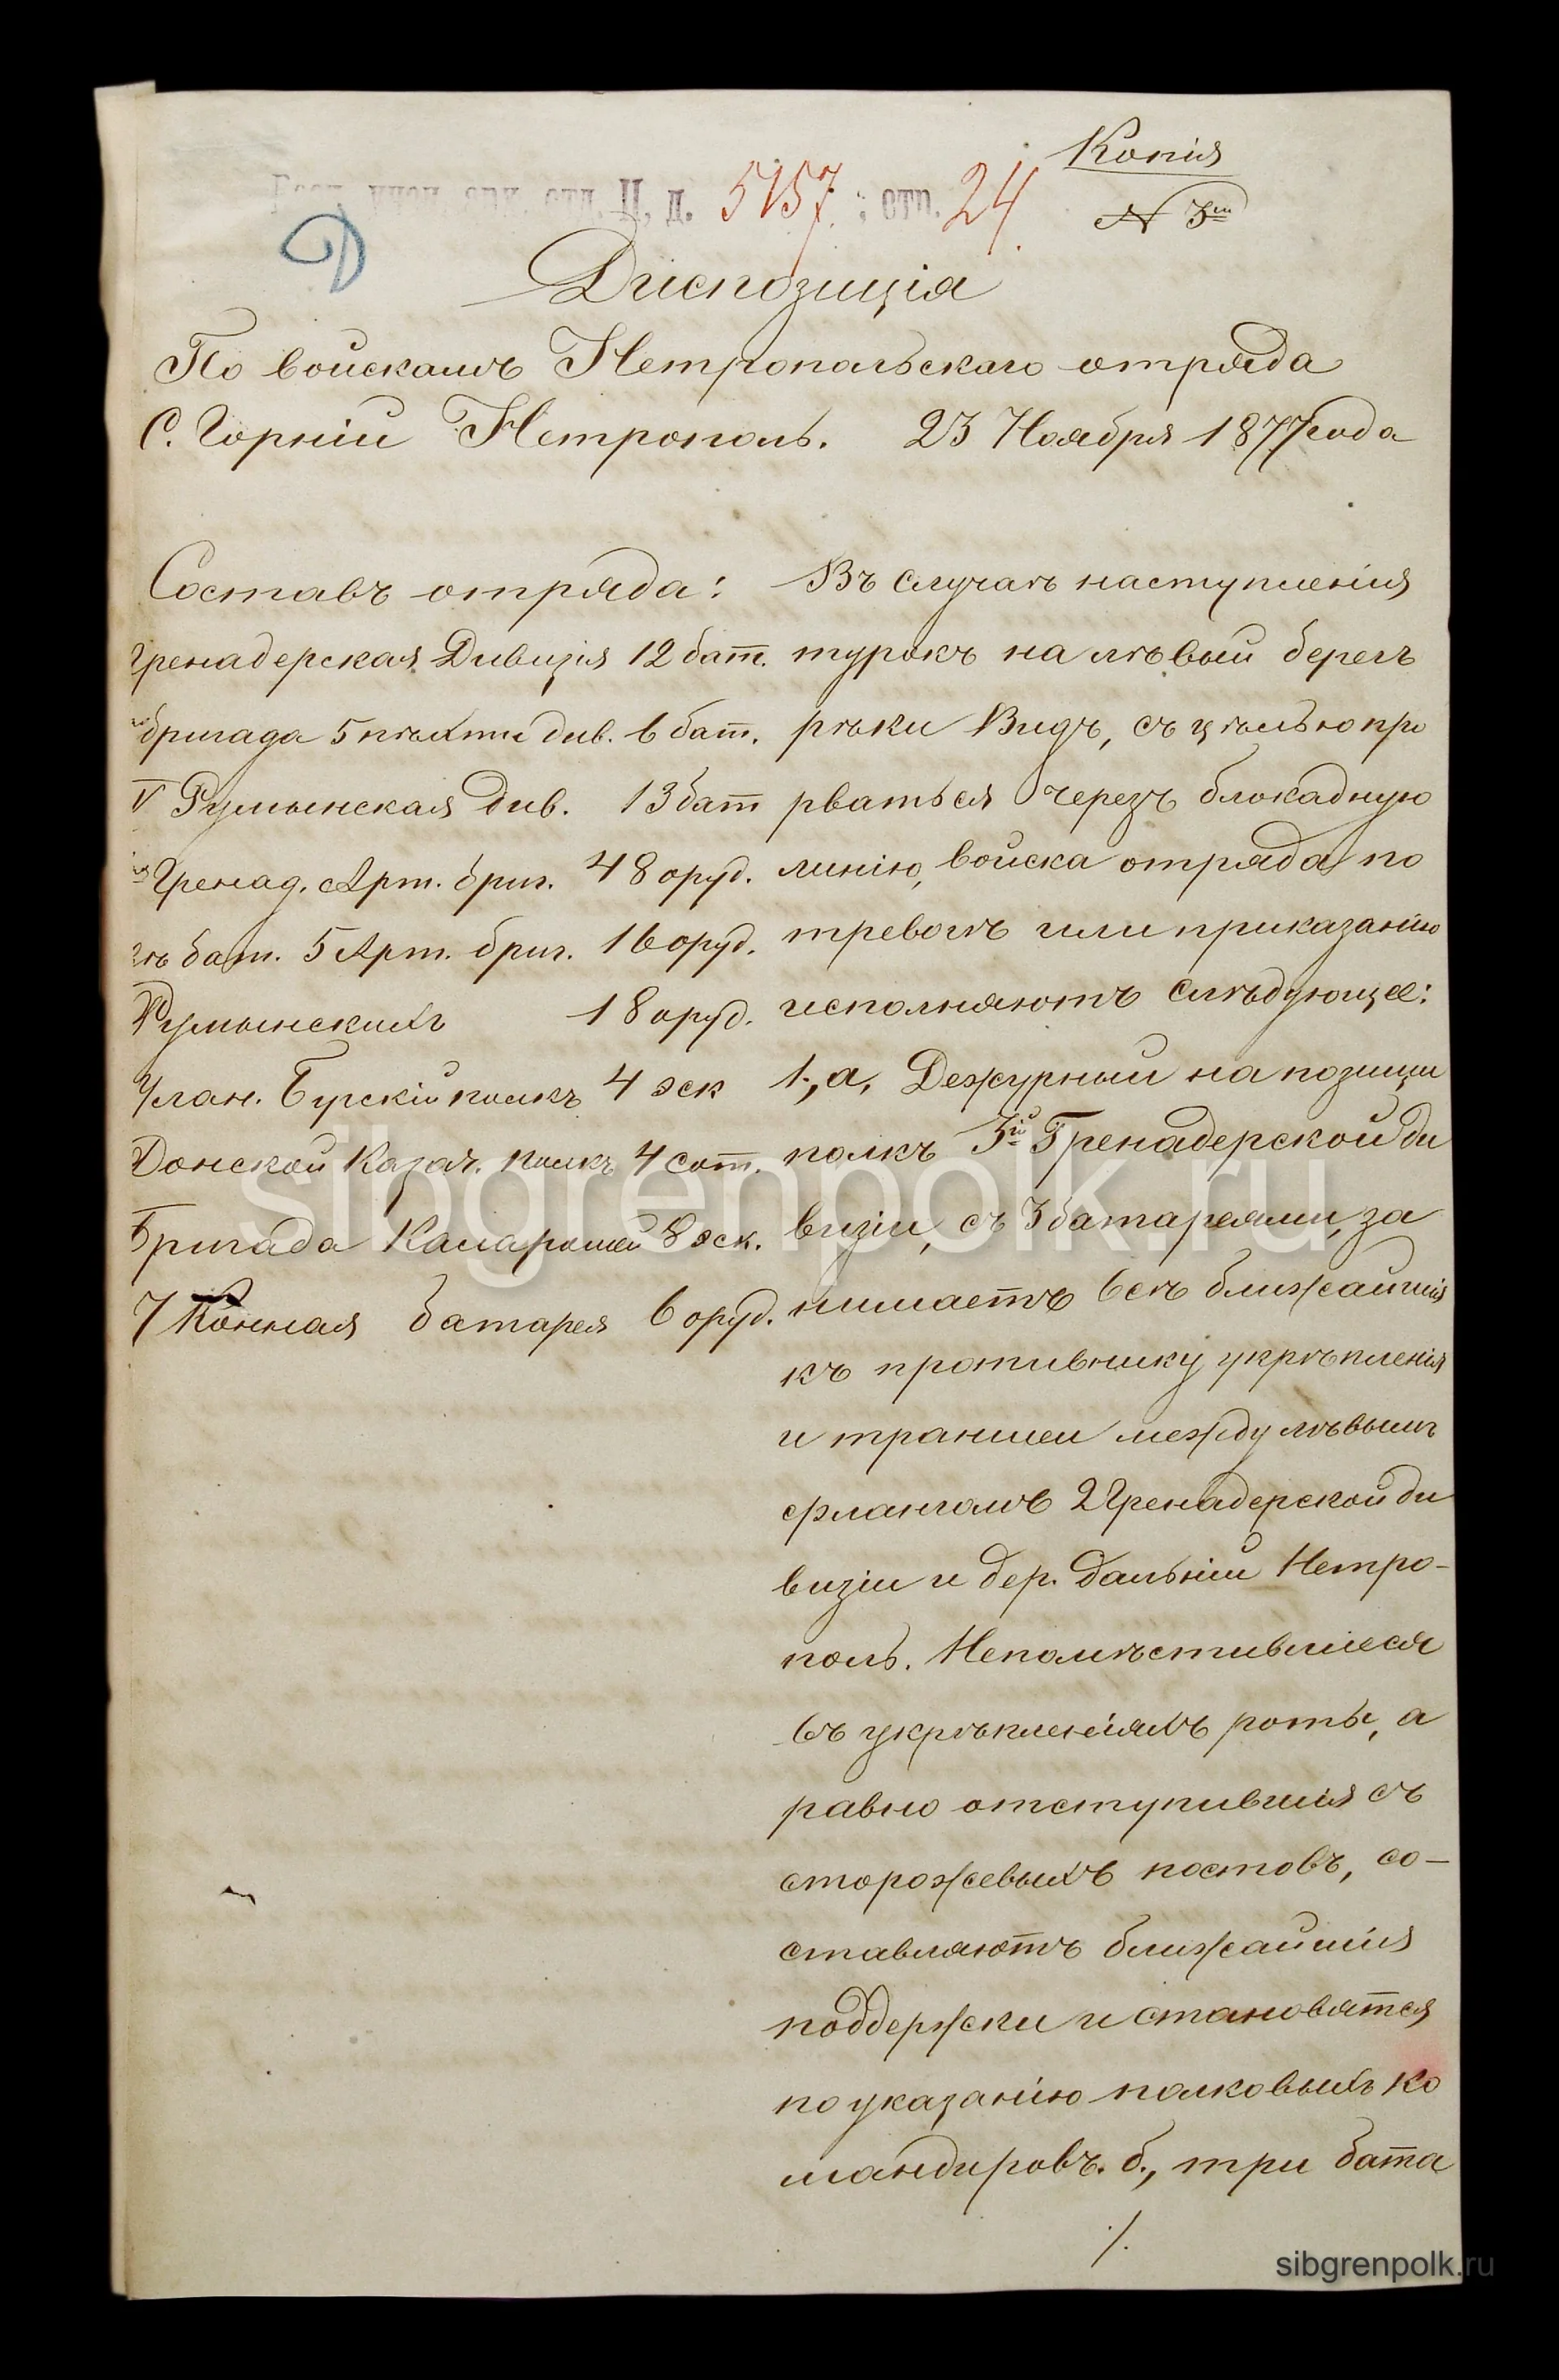 Копія
№ 3й
отд. II, д. 5157; стр. 24.
Диспозиція
По войскамъ Нетропольскаго отряда
С. Горній Нетрополь. 23 Ноября 1877 года
Составъ отряда:
Гренадерская Дивизія 12 бат.
бригада 5 пѣхтн див. 6 бат.
IV Румынская див. 13 бат
Гренад. Арт. бриг. 48 оруд.
бат. 5 Арт. бриг. 16 оруд.
Румынскихъ 18 оруд.
Улан. Бугскій полкъ 4 эск
Донской Казач. полкъ 4 сот.
Бригада Каларашей 8 эск.
7 Конная батарея 6 оруд.
Въ случаѣ наступленія
турокъ на лѣвый берегъ
рѣки Видъ, съ цѣлью про
рваться черезъ блокадную
линію, войска отряда по
тревогѣ или приказанію
исполняютъ слѣдующее:
1., а, Дежурный на позиции
полкъ 3й Гренадерской ди
визіи, съ 3 батареями, за
нимаетъ всѣ ближайшія
къ противнику укрѣпленія
и траншеи между лѣвымъ
флангомъ 2 Гренадерской ди
визіи и дер. Дальній Нетро-
поль. Непомѣстившіеся
въ укрѣпленіяхъ роты, а
равно отступившія съ
сторожевыхъ постовъ, со-
ставляютъ ближайшія
поддержки и становятся
по указанію полковыхъ ко
мандировъ. б., три бата
./.
sibgrenpolk.ru
sibgrenpolk.ru